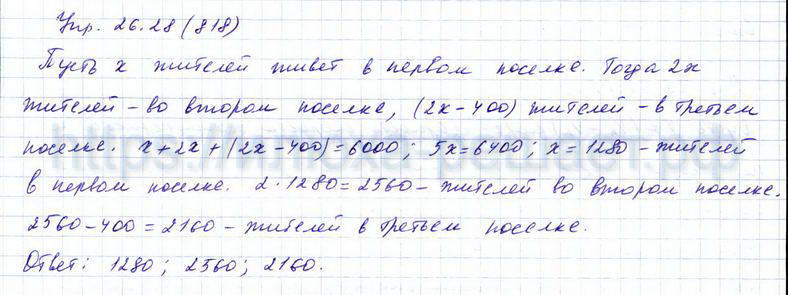 Упр. 26.28 (818)
Пусть х жителей живет в первом поселке. Тогда 2х
жителей - во втором поселке, (2х-400) жителей - в третьем
поселке. х+2х+(2х-400)=6000; 5х=6400; х=1280 - жителей
в первом поселке. 2·1280=2560 - жителей во втором поселке.
2560-400=2160 - жителей в третьем поселке.
Ответ: 1280; 2560; 2160.